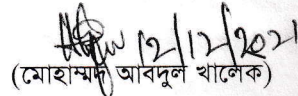 12/12/2021
(মোহাম্মদ আবদুল খালেক)